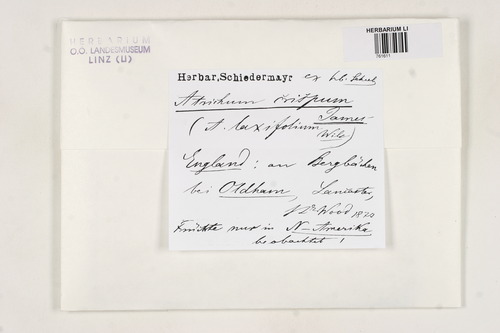 HERBARIUM
O.Ö. LANDESMUSEUM
LINZ (LI)
HERBARIUM LI
761611
Herbar, Schiedermayr ex
Atrichum crispum
James
(A. laxifolium Wils.)
England: an Bergbächen
bei Oldham, Lancaster,
Wood
Früchte nur in N-Amerika
beobachtet!